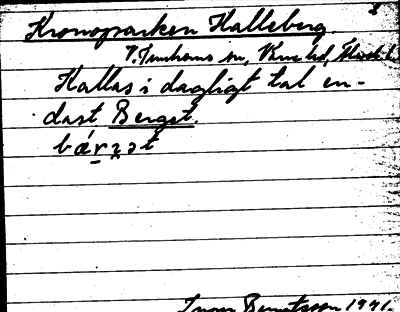 Kronoparken Halleberg.
V. Tunhems sn, Väne hd,
Kallas i dagligt tal en-
dast Berget.
Bengtsson 1941.